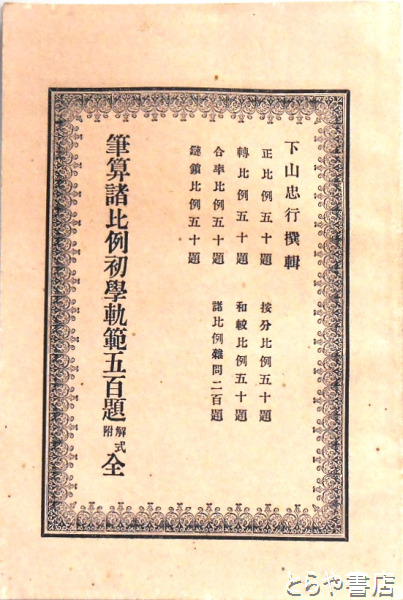 下山忠行撰輯
正比例五十題
按分比例五十題
轉比例五十題
和較比例五十題
合率比例五十題
諸比例雜問二百題
鏈鎖比例五十題
筆算諸比例初學軌範五百題 解式附 全
とらや書店